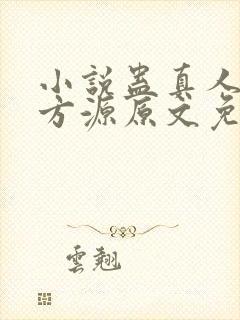 小說蠱真人
方源原文免
雲翹